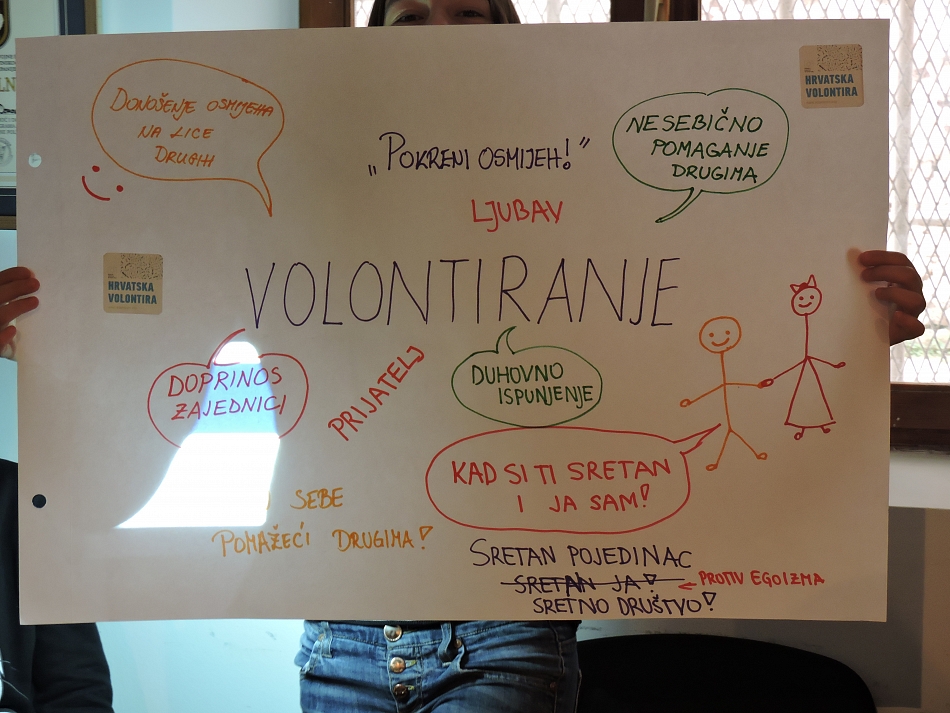 DONOŠENJE OSMJEHA
NA LICE
DRUGIH
HRVATSKA
VOLONTIRA
„POKRENI OSMIJEH!”
NESEBIČNO
POMAGANJE
DRUGIMA
LJUBAV
HRVATSKA
VOLONTIRA
VOLONTIRANJE
DOPRINOS
ZAJEDNICI
PRIJATELJ
DUHOVNO
ISPUNJENJE
KAD SI TI SRETAN
I JA SAM!
SEBE
POMAŽEĆI DRUGIMA!
SRETAN POJEDINAC
SRETAN JA!
PROTIV EGOIZMA
SRETNO DRUŠTVO!